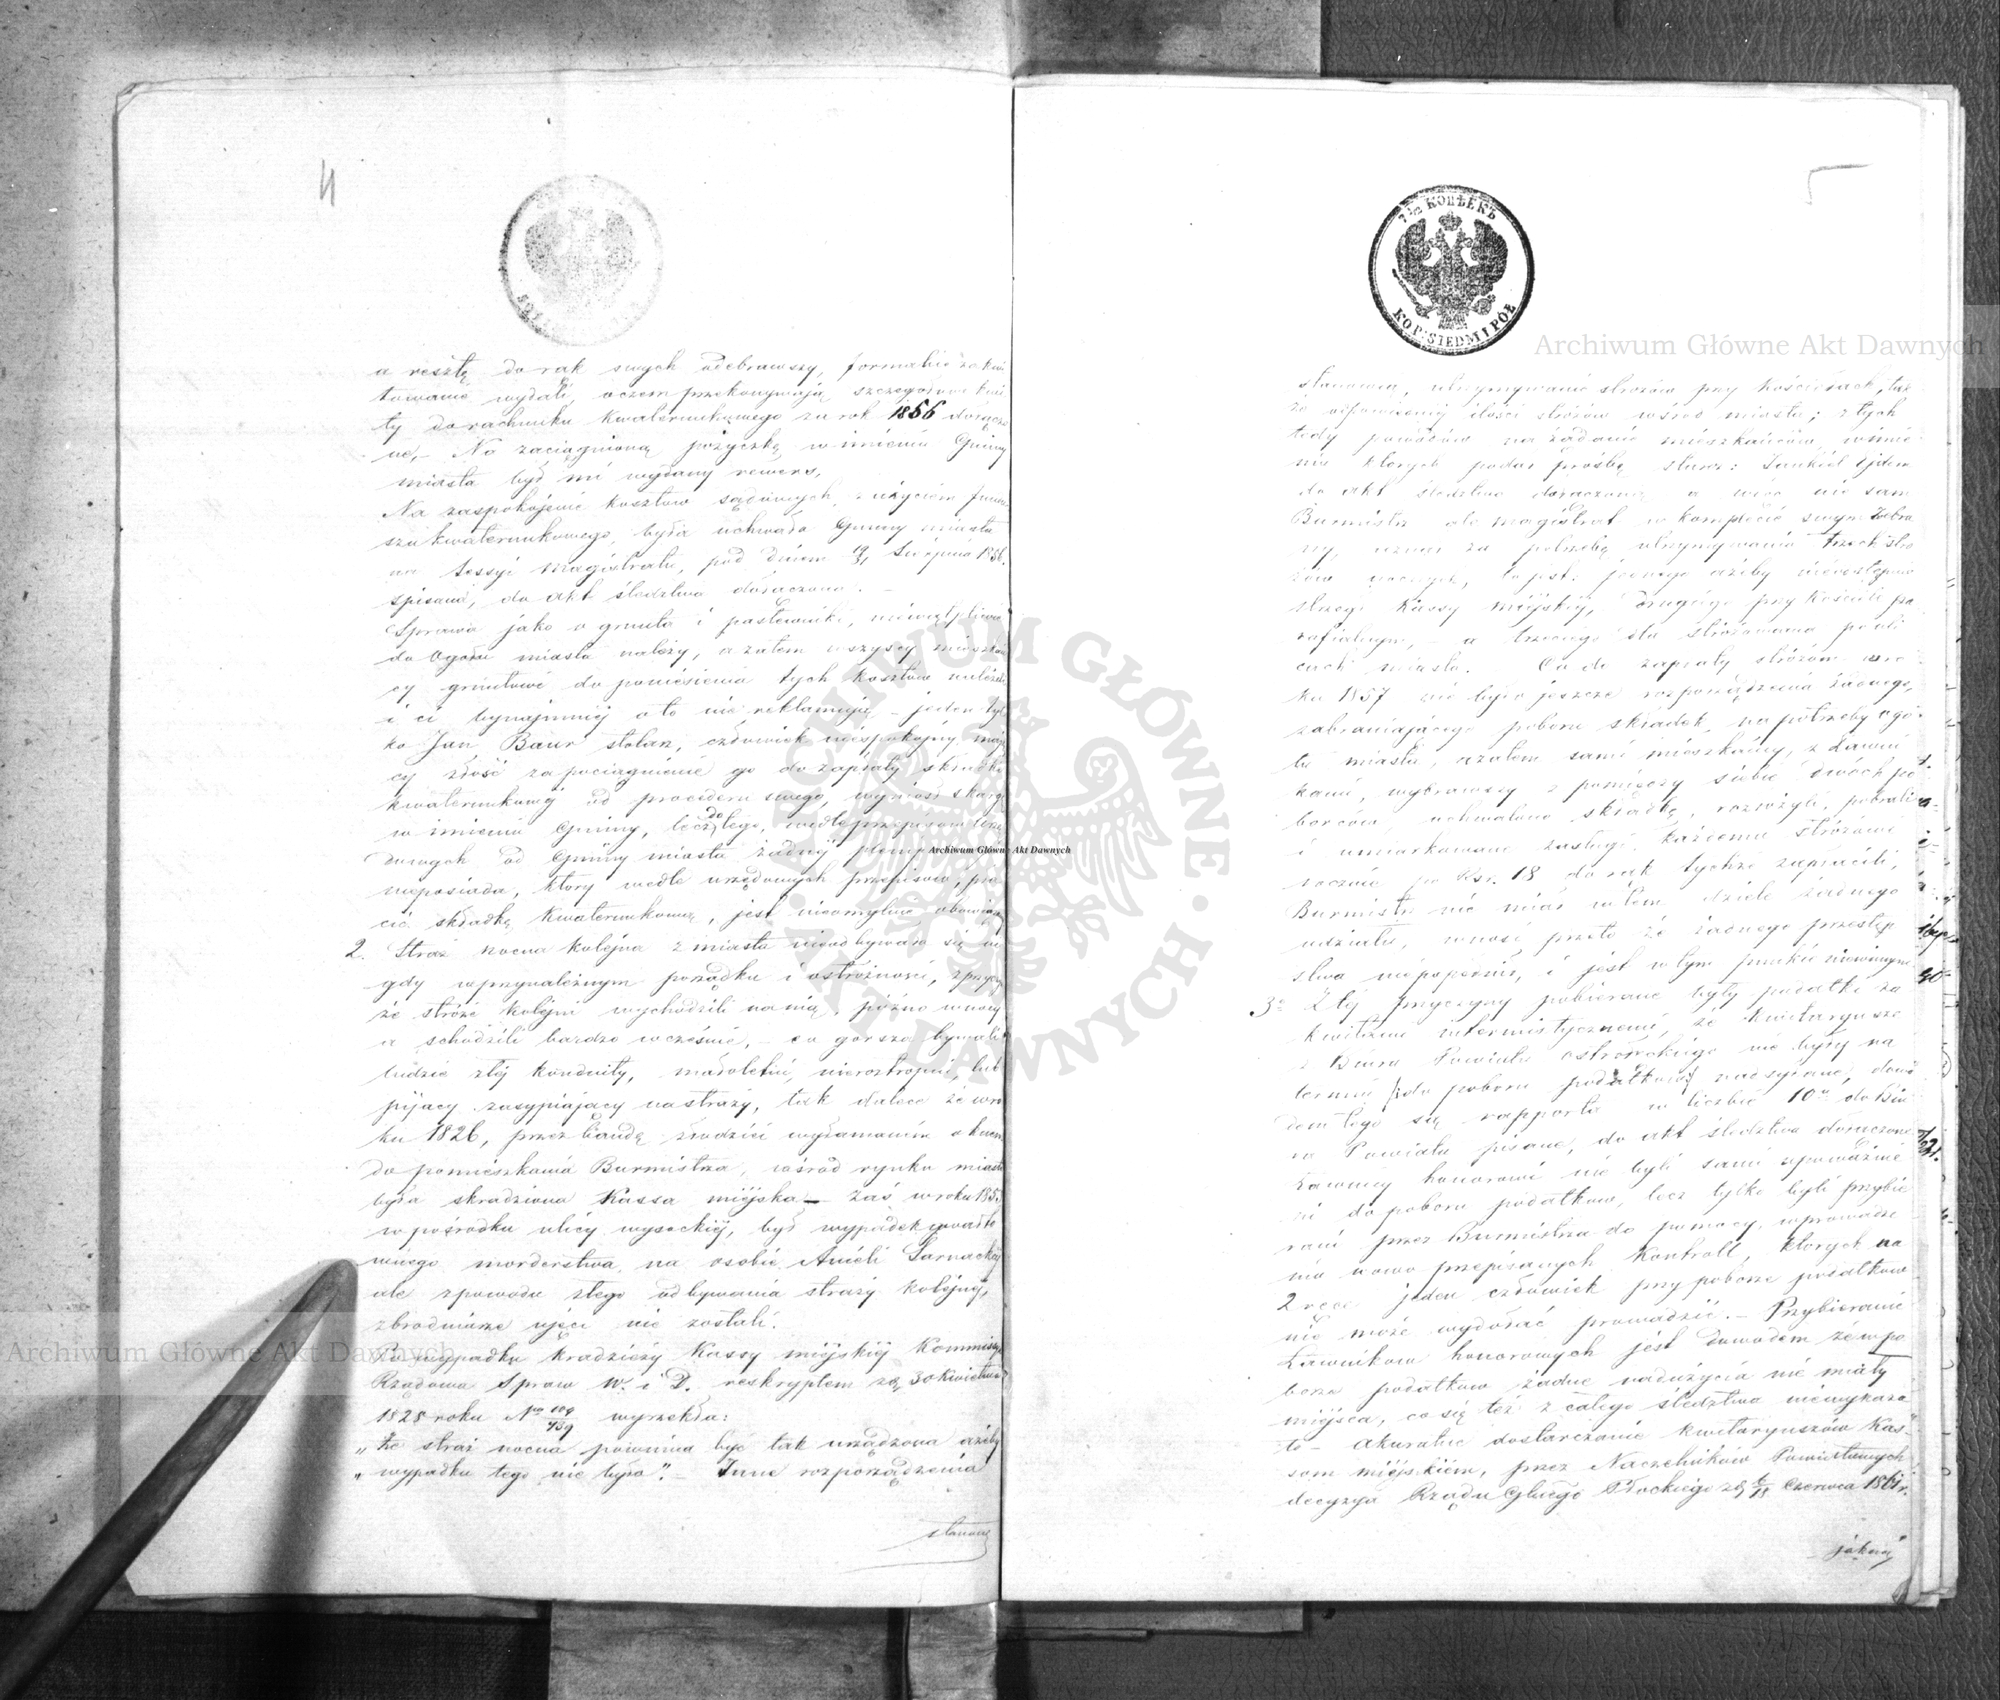 4
a resztę do rąk swych odebrawszy, formalnie zakwi
towanie wydali, o czem przekonywają szczegółowe kwi
ty do rachunku kwaterunkowego za rok 1856 dołączo
ne, – Na zaciągnioną pożyczkę w imieniu Gminy
miasta był mi wydany rewers,
Na zaspokojenie kosztów sądowych z użyciem fundu
szu kwaterunkowego, była uchwała Gminy miasta
na Sessyi Magistratu, pod dniem Sierpnia 1856.
spisana, do akt śledztwa dołączona. –
Sprawa jako o grunta i pastwiska, niewątpliwie
do Ogółu miasta należy, a zatem wszyscy mieszkań
cy gruntowi do poniesienia tych kosztów należeli
i ci bynajmniej o to nie reklamują – jeden tyl
ko Jan Baur stolarz, człowiek niespokojny, mają
cy złość za pociągnienie go do zapłaty składki
kwaterunkowej od procederu swego, wyniósł skargę
w imieniu Gminy, lecz do tego, wedle przepisów
od Gminy miasta żadnej
nieposiada, który wedle urzędowych przepisów, pła
cić składkę kwaterunkową, jest nieomylnie obowiąz
2. Straż nocna kolejna z miasta nieodbywała się ni
gdy w przynależnym porządku i ostrożności, z przycz
że stróże kolejni wychodzili na nią, późno w nocy
a schodzili bardzo wcześnie, – co gorsza bywali
ludzie złej konduity, małoletni, nieroztropni, lub
pijacy zasypiający na straży, tak dalece że w ro
ku 1826, przez bandę złodziei wyłamaniem okien
do pomieszkania Burmistrza, wśród rynku miasta
była skradziona Kassa miejska – zaś w roku 185
w pośrodku ulicy wysockiej, był wypadek gwałto
wnego morderstwa na osobie Anieli Sarnackiej
ale z powodu złego odbywania straży kolejnej,
zbrodniarze ujęci nie zostali.
Po wypadku kradzieży Kassy miejskiej Kommissya
Rządowa Spraw W. i D. reskryptem z d. 30 Kwietnia
1828 roku No wyrzekła:
„Że straż nocna powinna być tak urządzona ażeby
„wypadku tego nie było”. – Inne rozporządzenia
stanowią
5
7½ КОПѢЕКЪ
KOP. SIEDM I PÓŁ
stanowią, utrzymywanie stróżów przy kościołach, tud
że odpowiedniej ilości stróżów wśród miasta; z tych
tedy powodów na żądanie mieszkańców, w imie
niu których podał prośbę staroz: Zankiel Ejdem
do akt śledztwa dołączoną a więc nie sam
Burmistrz ale magistrat w komplecie swym zebra
ny, uznał za potrzebę utrzymywania trzech stró
żów nocnych, to jest: jednego ażeby nieodstępnie
strzegł Kassy miejskiej, drugiego przy kościele pa
rafialnym, – a trzeciego dla stróżowania po uli
cach miasta. Co do zapłaty stróżom w ro
ku 1857 nie było jeszcze rozporządzenia żadnego,
zabraniającego poboru składek na potrzeby ogó
łu miasta, a zatem sami mieszkańcy, z Ławni
kami, wybrawszy z pomiędzy siebie dwóch po
borców, uchwaloną składkę, rozłożyli, pobrali
i umiarkowane zasługi każdemu stróżowi
rocznie po Rsr. 18 do rąk tychże zapłacili,
Burmistrz nie miał w tem dziele żadnego
udziału, wnosi przeto że żadnego przestęp
stwa niepopełnił, i jest w tym punkcie niewinnym
3° Z tej przyczyny pobierane były podatki za
kwitami intermistycznemi, że kwitaryusze
z Biura Powiatu Ostrołęckiego nie były na
termin do poboru podatków nadsyłane, dowo
dem tego są rapporta w liczbie 10u do Biu
ra Powiatu pisane, do akt śledztwa dołączone
Ławnicy honorowi nie byli sami upoważnie
ni do poboru podatków, lecz tylko byli przybie
rani przez Burmistrza do pomocy, wprowadze
nia nowo przepisanych Kontroll, których na
2 ręce jeden człowiek przy poborze podatków
nie może wydołać prowadzić. – Przybieranie
Ławników honorowych jest dowodem że w po
borze podatków żadne nadużycia nie miały
miejsca, co się też z całego śledztwa niewykaza
ło – akuratne dostarczanie kwitaryuszów Kas
som miejskiem, przez Naczelników Powiatowych
decyzya Rządu Głnego Płockiego z d. 6/18 Czerwca 1861 r.
jakoż
Archiwum Główne Akt Dawnych
Archiwum Główne Akt Dawnych
Archiwum Główne Akt Dawnych
ARCHIWUM GŁÓWNE
AKT DAWNYCH